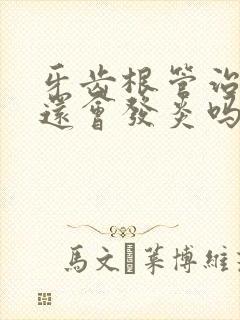 牙齿根管治
還會發炎吗
馬文 莱博維